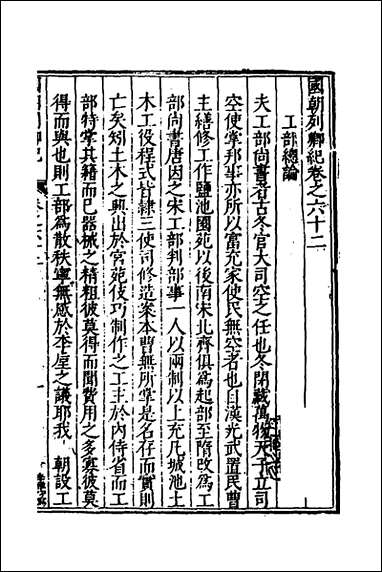 國朝列卿紀卷之六十二
工部總論
夫工部尚書者古冬官大司空之任也冬閉藏萬物天子立司
空使掌邦事亦所以富充家使民無空者也自漢光武置民曹
主繕修工作鹽池國苑以後南宋北齊俱為起部至隋改為工
部尚書唐因之宋工部判部事一人以兩制以上充凡城池土
木工役程式皆隸三使司修造案本曹無所掌是名存而實則
亡矣矧土木之興出於宮苑伎巧制作之工主於内侍省而工
部特掌其籍而已器械之精粗彼莫得而聞費用之多寡彼莫
得而與也則工部為散秩寧無感於李垕之議耶我 朝設工